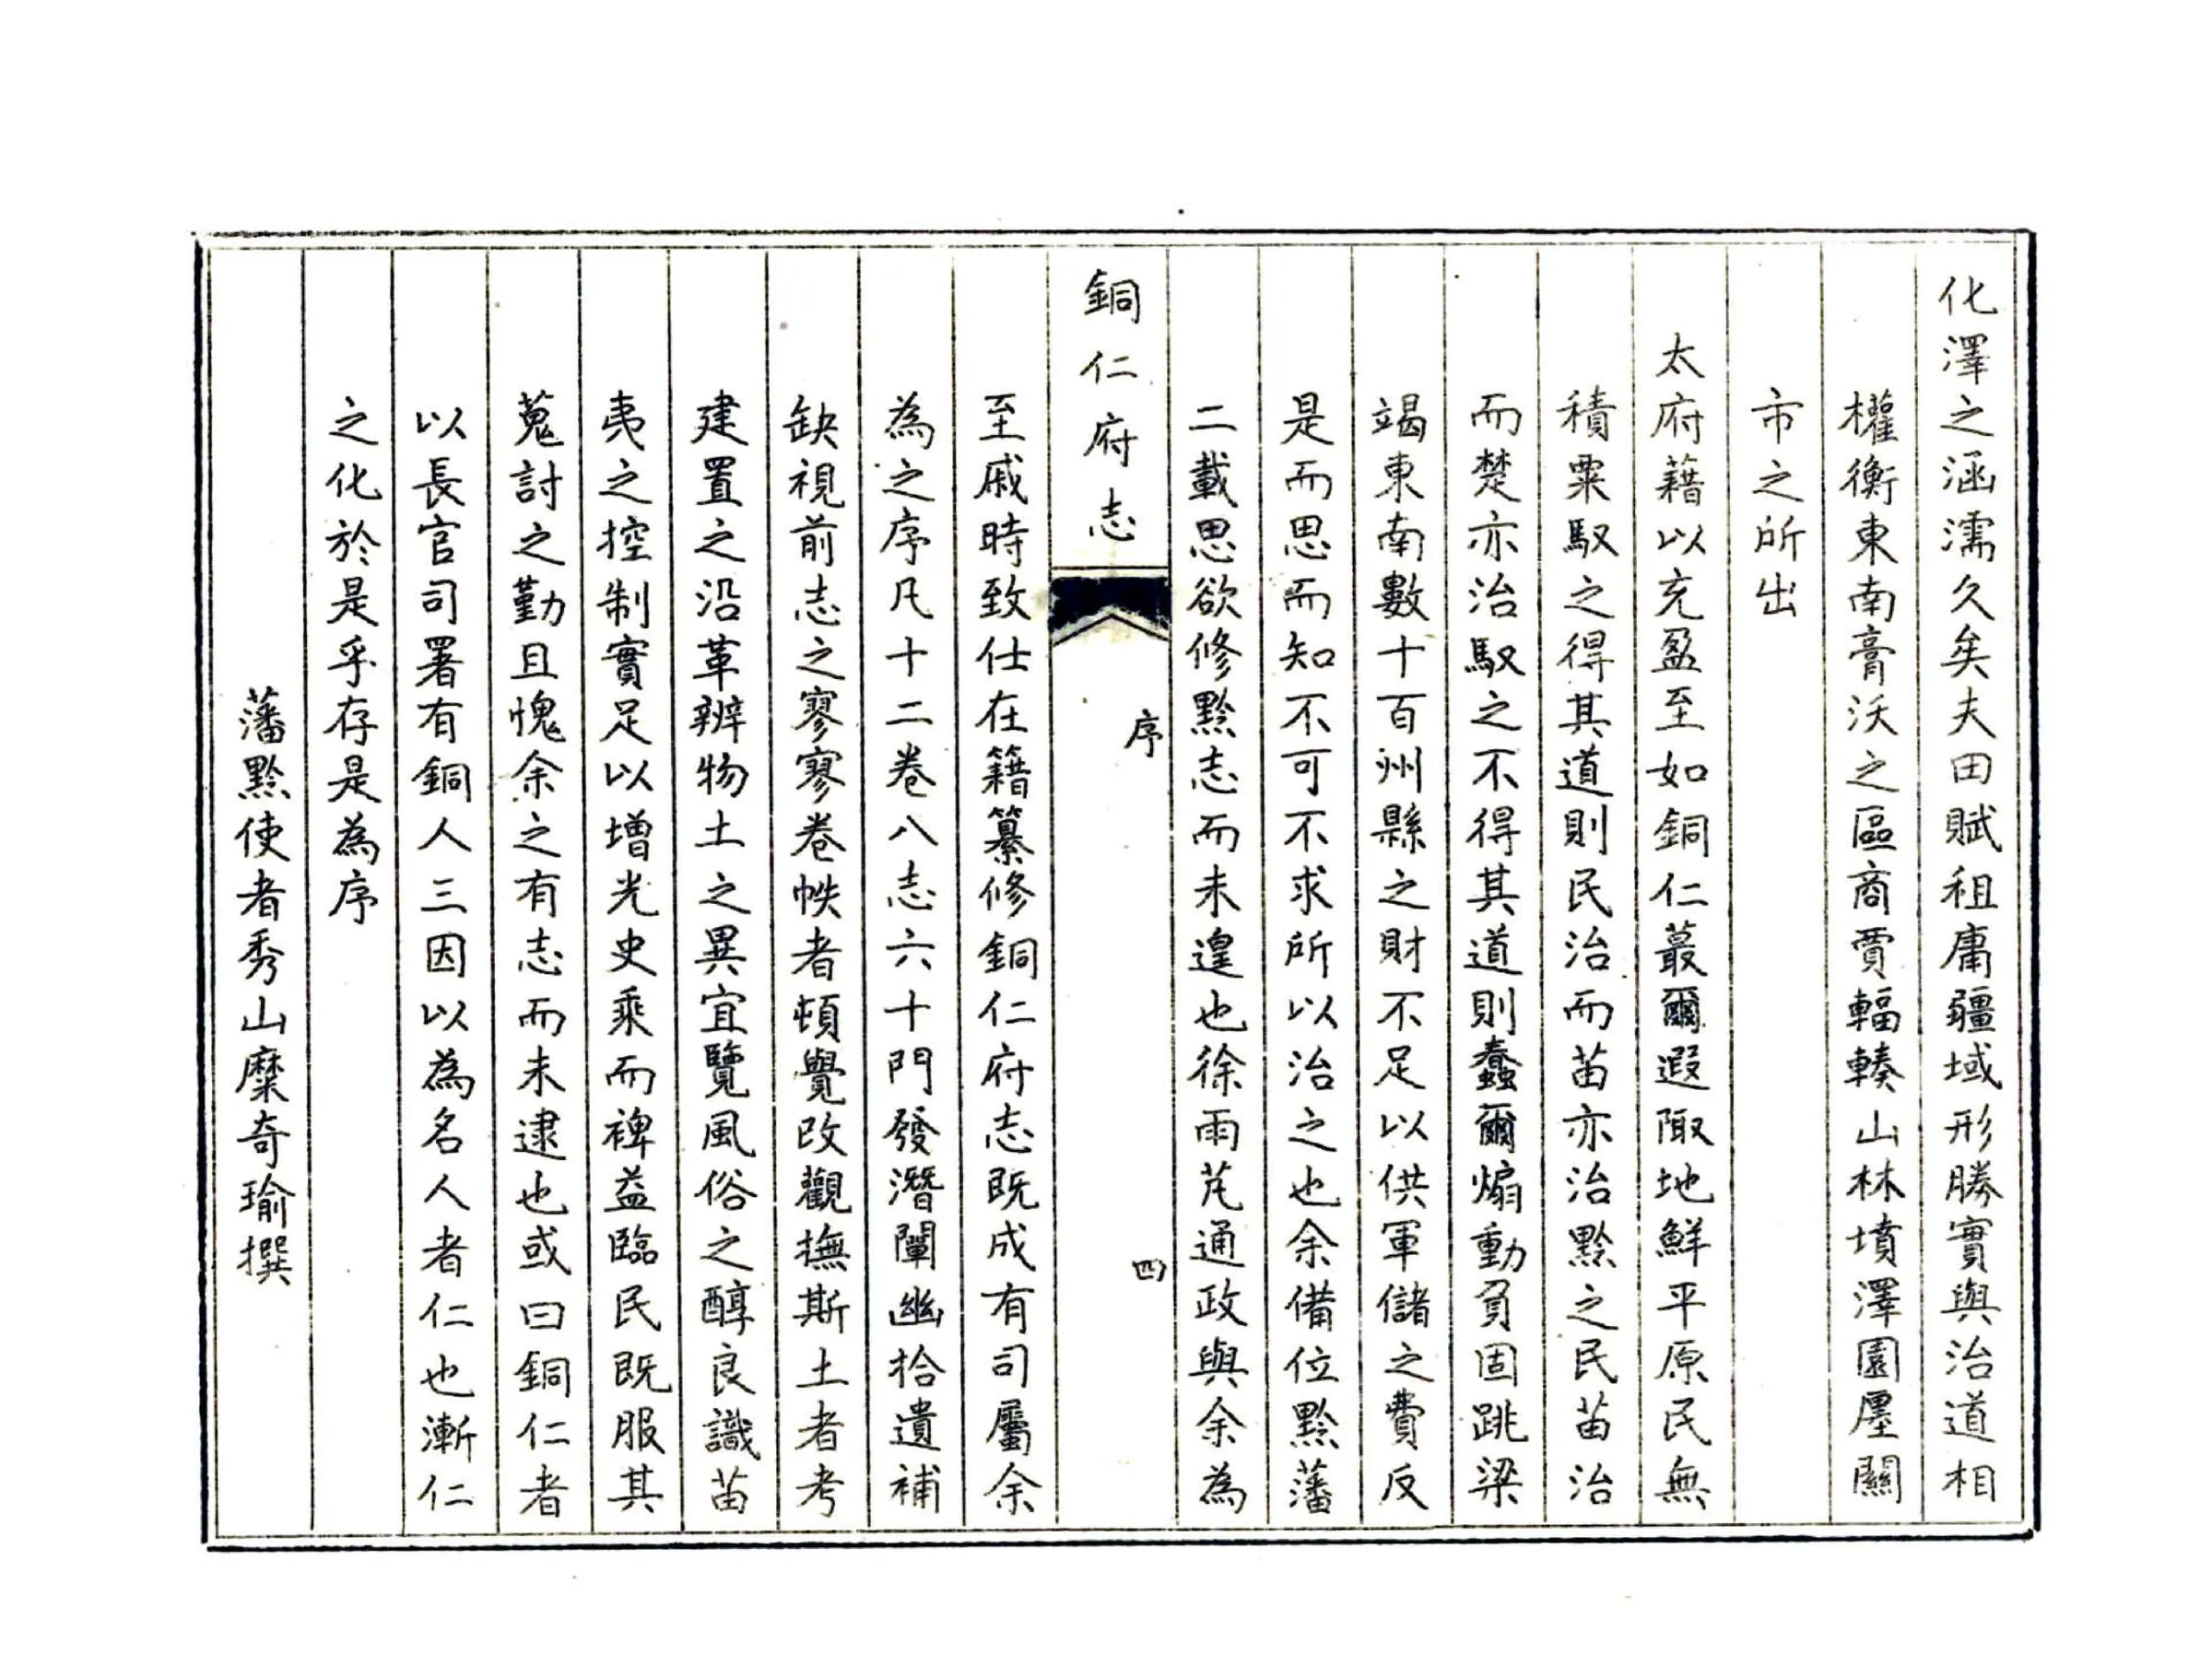 化澤之涵濡久矣夫田賦租庸疆域形勝實與治道相
權衡東南膏沃之區商賈輻輳山林墳澤園廛關
市之所出
太府藉以充盈至如銅仁蕞爾遐陬地鮮平原民無
積粟馭之得其道則民治而苗亦治黔之民苗治
而楚亦治馭之不得其道則蠢爾煽動負固跳梁
竭東南數十百州縣之財不足以供軍儲之費反
是而思而知不可不求所以治之也余備位黔藩
二載思欲修黔志而未遑也徐雨芃通政與余為
銅仁府志 序 四
至戚時致仕在籍纂修銅仁府志既成有司屬余
為之序凡十二卷八志六十門發潛闡幽拾遺補
缺視前志之寥寥卷帙者頓覺改觀撫斯土者考
建置之沿革辨物土之異宜覽風俗之醇良識苗
夷之控制實足以增光史乘而裨益臨民既服其
蒐討之勤且愧余之有志而未逮也或曰銅仁者
以長官司署有銅人三因以為名人者仁也漸仁
之化於是乎存是為序
藩黔使者秀山糜奇瑜撰